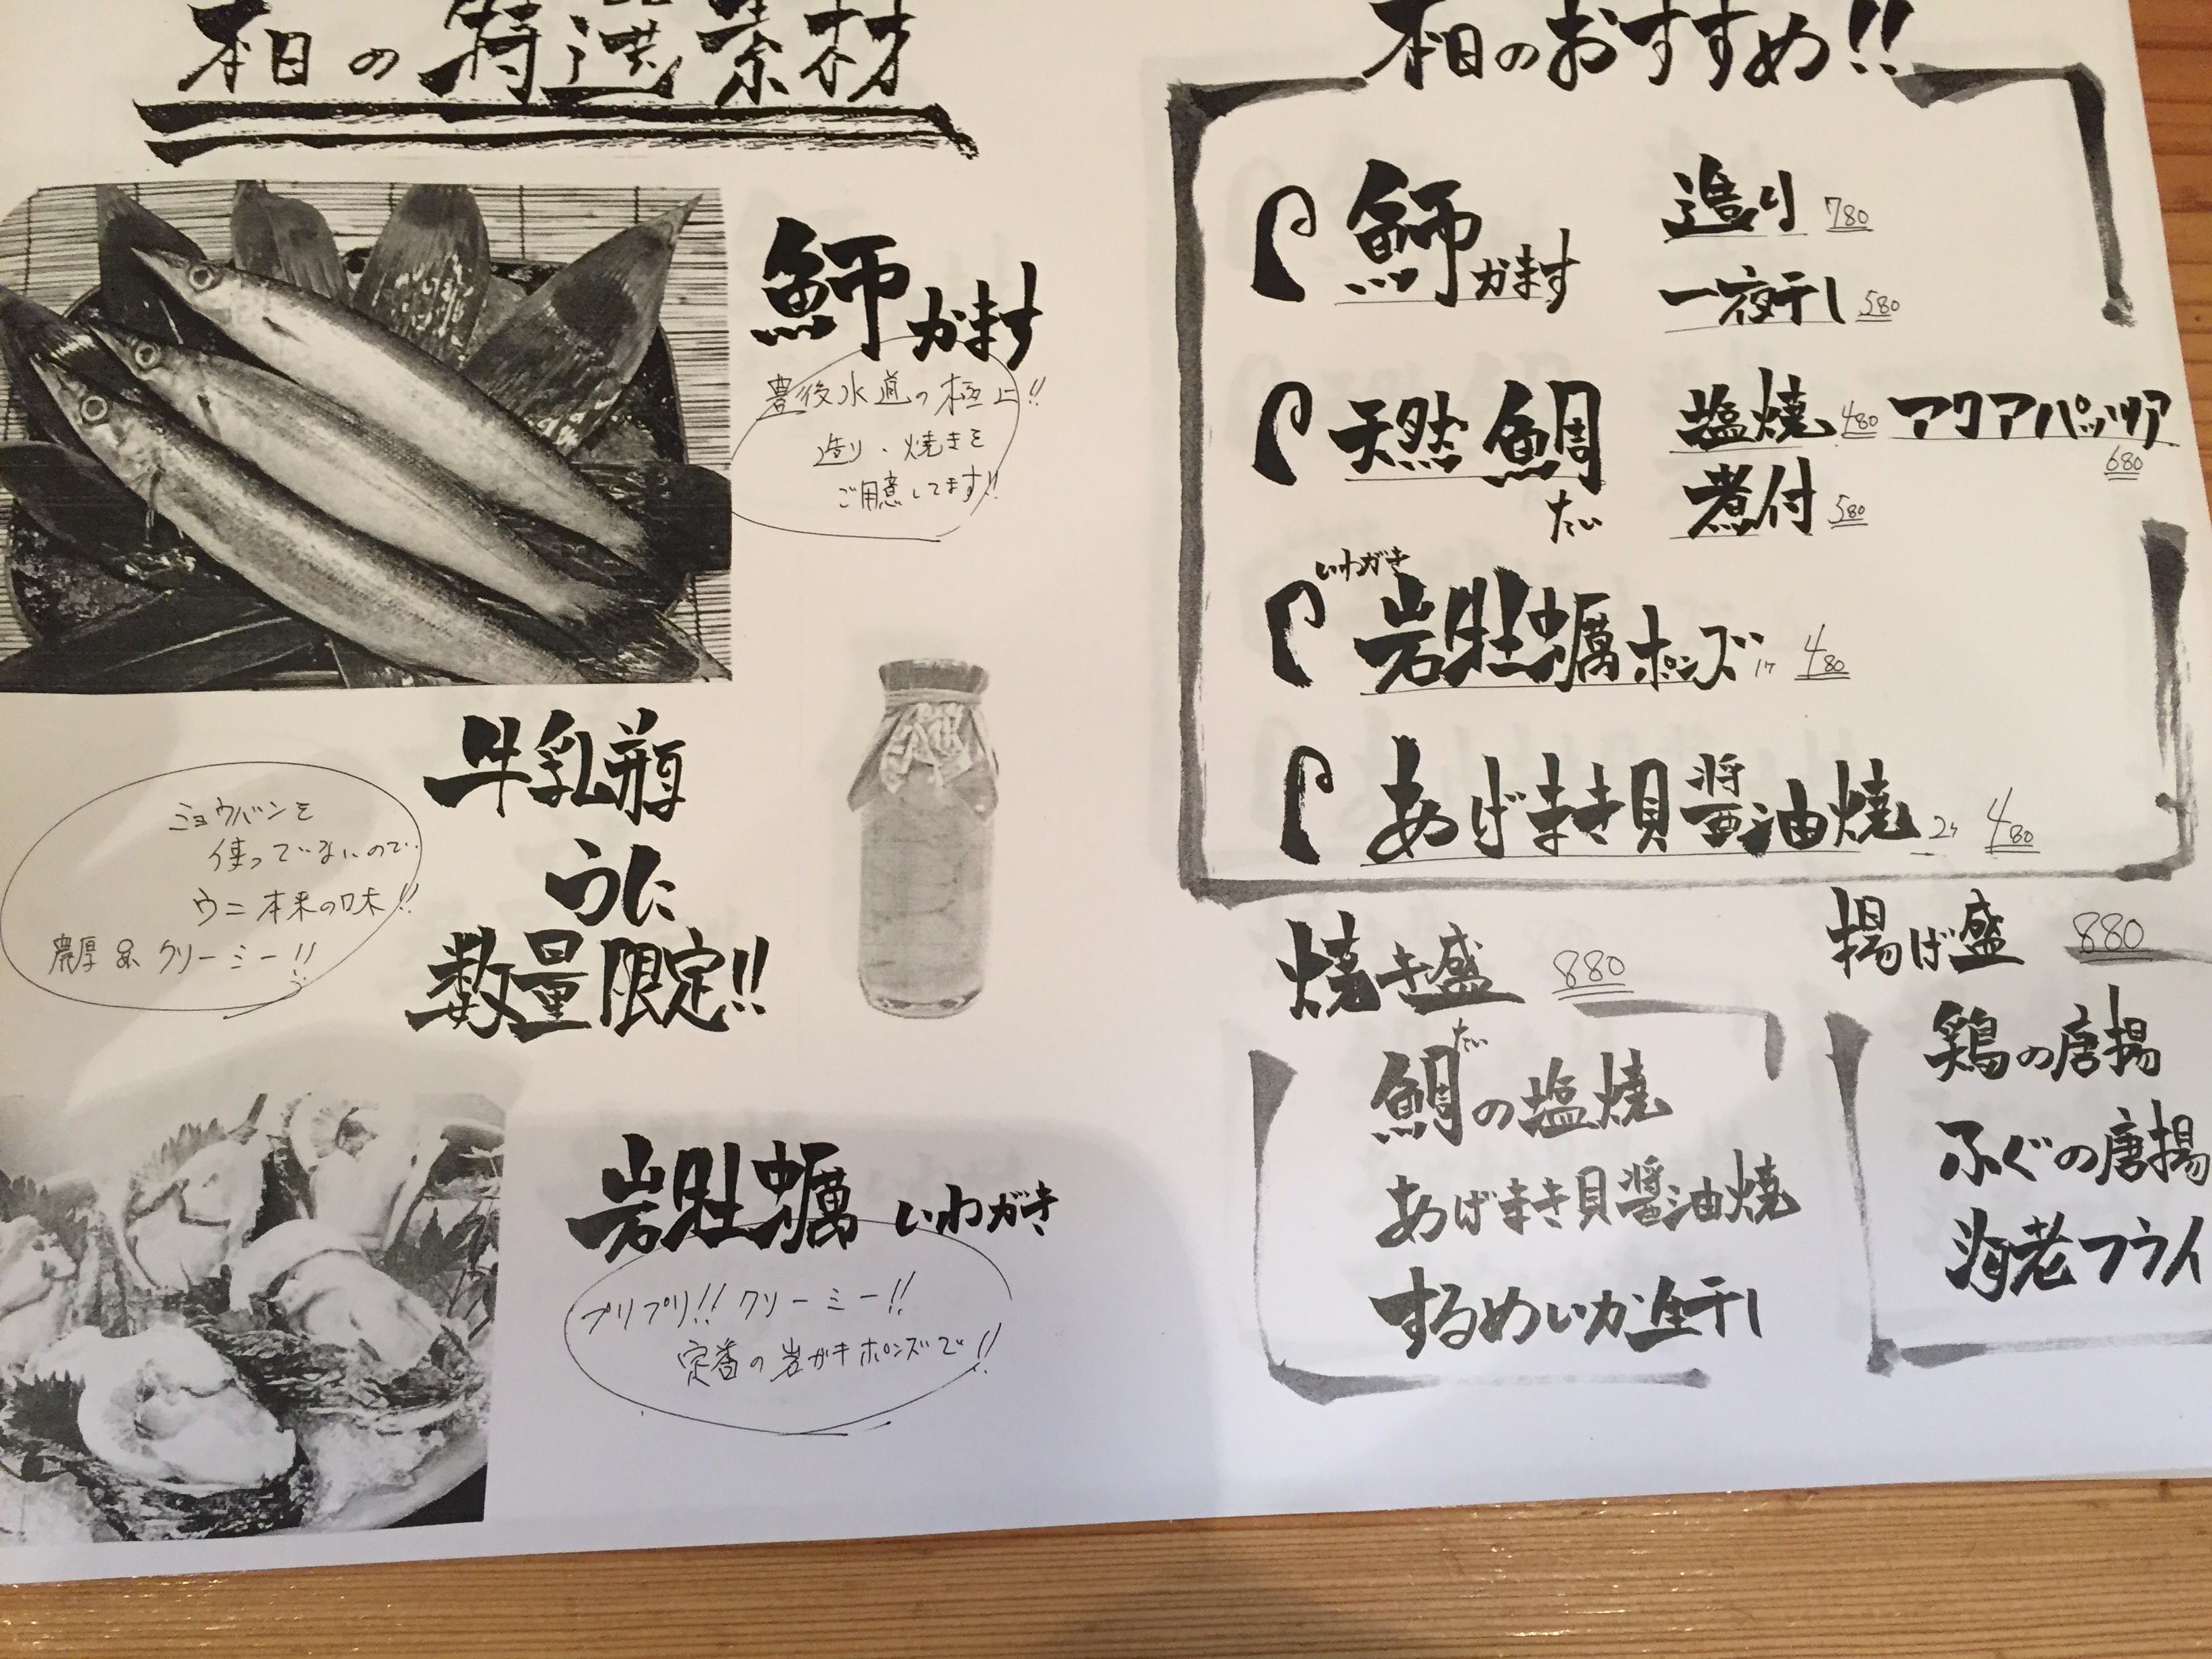 本日の特選素材
魳 かます
豊後水道の極上!!
造り、焼きを
ご用意してます!!
牛乳瓶
うに
数量限定!!
ミョウバンを
使っていないので
ウニ本来の味!!
濃厚 & クリーミー!!
岩牡蠣 いわがき
プリプリ!! クリーミー!!
定番の岩ガキポンズで!!
本日のおすすめ!!
魳 かます 造り 780
一夜干し 580
天然鯛 たい 塩焼 480 アクアパッツァ 680
煮付 580
いわがき
岩牡蠣ポンズ 1ケ 480
あげまき貝醤油焼 2ケ 480
焼き盛 880
鯛の塩焼
たい
あげまき貝醤油焼
するめいか全干し
揚げ盛 880
鶏の唐揚
ふぐの唐揚
海老フライ